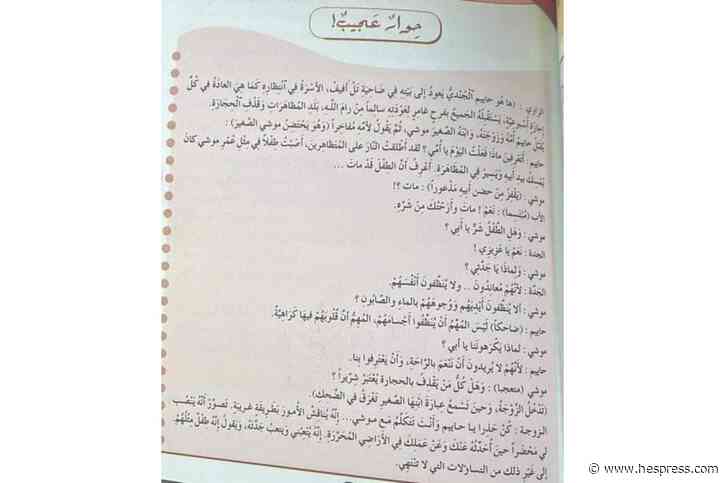 حِوارٌ عَجيبٌ!
الراوي : (ها هُوَ حاييم ٱلْجُنْدِيُّ يَعودُ إلى بَيْتِهِ في ضاحِيَةِ تَلْ أَفيفْ، الأُسْرَةُ في ٱنْتِظارِهِ كَما هِيَ العادَةُ في كُلِّ
إجازَةٍ أُسْبوعِيَّةٍ، يَسْتَقْبِلُهُ الجَميعُ بِفَرَحٍ غامِرٍ لِعَوْدَتِهِ سالِماً مِنْ رامَ اللّه، بَلَدِ المُظاهَراتِ وَقَذْفِ ٱلْحِجارَةِ.
يُقَبِّلُ حاييم أُمَّهُ وَزَوْجَتَهُ، وَابْنَهُ الصَّغيرَ موشي، ثُمَّ يَقولُ لِأُمِّهِ مُفاخِراً (وَهُوَ يَحْتَضِنُ موشي الصَّغيرَ) :
حاييم : أَتَعْرِفينَ ماذا فَعَلْتُ اليَوْمَ يا أُمِّي ؟ لَقَدْ أَطْلَقْتُ النّارَ على المُتَظاهِرينَ، أَصَبْتُ طِفْلاً في مِثْلِ عُمُرِ موشي كانَ
يُمْسِكُ بِيَدِ أَبيهِ وَيَسيرُ في المُظاهَرَةِ. أَعْرِفُ أَنَّ الطِفْلَ قَدْ ماتَ ...
موشي : (يَقْفِزُ مِنْ حِضْنِ أَبيهِ مَذْعوراً) : مات ؟!
الأب (مُبْتَسِما) : نَعَمْ ! ماتَ وَأَرَحْتُكَ مِنْ شَرِّهِ.
موشي : وَهَلِ الطِّفْلُ شَرٌّ يا أَبي ؟
الجدة : نَعَمْ يا عَزيزي !
موشي : وَلِماذا يا جَدَّتي ؟
الجَدَّة : لِأَنَّهُمْ مُعانِدُونَ .. ولا يُنَظِّفونَ أَنْفُسَهُمْ.
موشي : أَلا يُنَظِّفونَ أَيْدِيَهُمْ وَوُجوهَهُمْ بِالماءِ والصّابُونِ ؟
حاييم : (ضاحكاً) لَيْسَ المُهِمُّ أَنْ يُنَظِّفُوا أَجْسامَهُمْ، المُهِمُّ أَنَّ قُلُوبَهُمْ فيها كَراهِيَّةٌ.
موشي : لِماذا يَكْرَهونَنا يا أَبي ؟
حاييم : لِأَنَّهُمْ لا يُريدونَ أَنْ نَنْعَمَ بِالرَّاحَةِ، وَأَنْ يَعْتَرِفوا بِنا.
موشي (متعجبا) : وَهَلْ كُلُّ مَنْ يَقْذِفُ بالحجارة يُعْتَبَرُ شِرِّيراً ؟
(تَدْخُلُ الزَّوْجَةُ، وَحينَ تَسْمَعُ عِبارَةَ ابْنِها الصَّغيرِ تَغْرَقُ في الضَّحِكِ).
الزوجة : كُنْ حَذِرا يا حاييم وَأَنْتَ تَتَكَلَّمُ مَعَ موشي... إِنَّهُ يُناقِشُ الأُمورَ بِطَريقَةٍ غَريبَةٍ. تَصَوَّرْ أَنَّهُ يَنْصُبُ
لي مَحْضَراً حينَ أُحَدِّثُهُ عَنْكَ وَعَنْ عَمَلِكَ في الأَراضي المُحَرَّرَةِ. إِنَّهُ يُتْعِبُني وَيُتعِبُ جَدَّتَهُ، وَيَقولُ إِنَّهُ طِفْلٌ مِثْلُهُمْ.
إلى غَيْرِ ذلك من التساؤلات التي لا تَنْتَهِي.
www.hespress.com